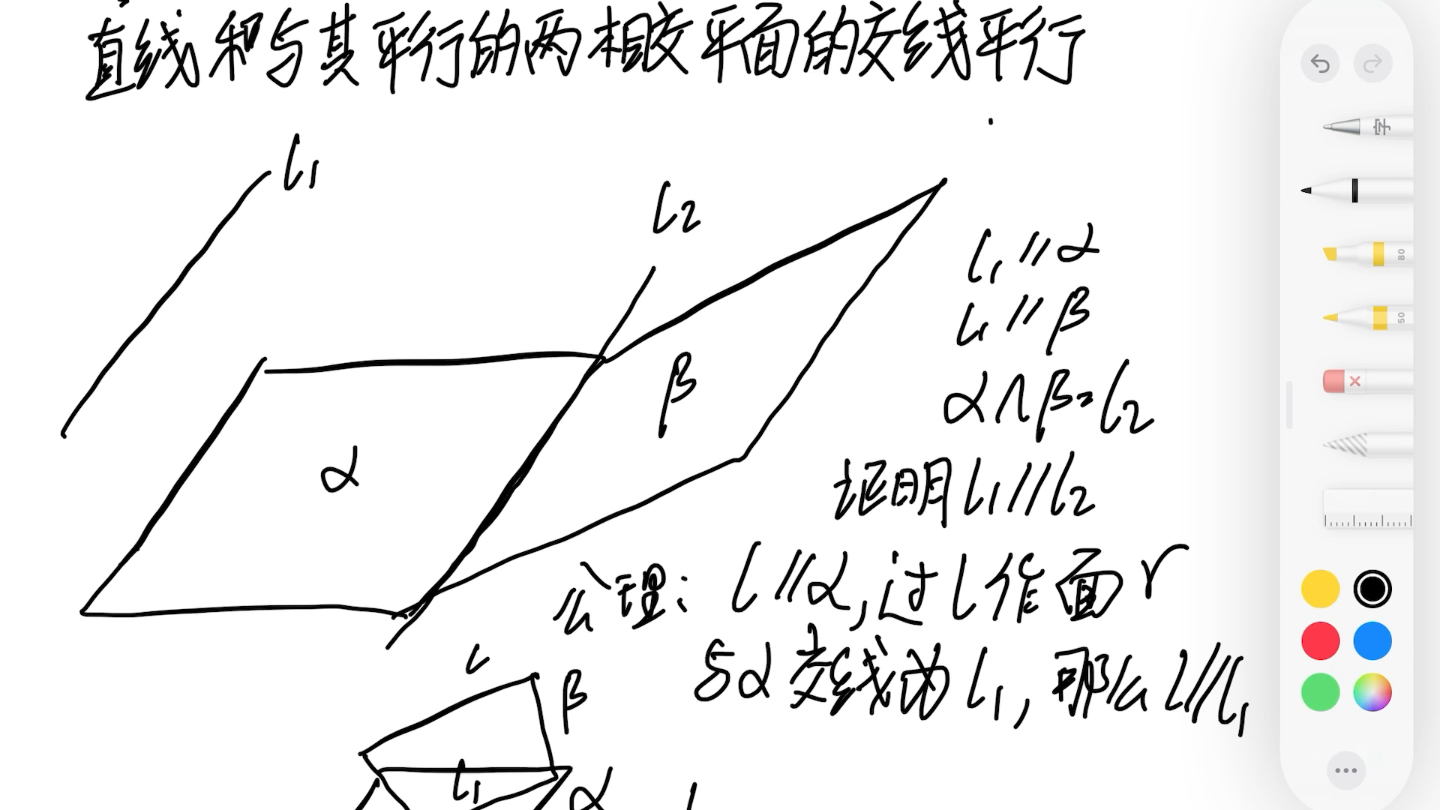 直线和与其平行的两相交平面的交线平行
l₁
l₂
l₁∥α
l₁∥β
β
α∩β=l₂
α
证明l₁∥l₂
公理:l∥α,过l作面γ
与α交线为l₁,那么l∥l₁
l
β
l₁
α
字
80
50